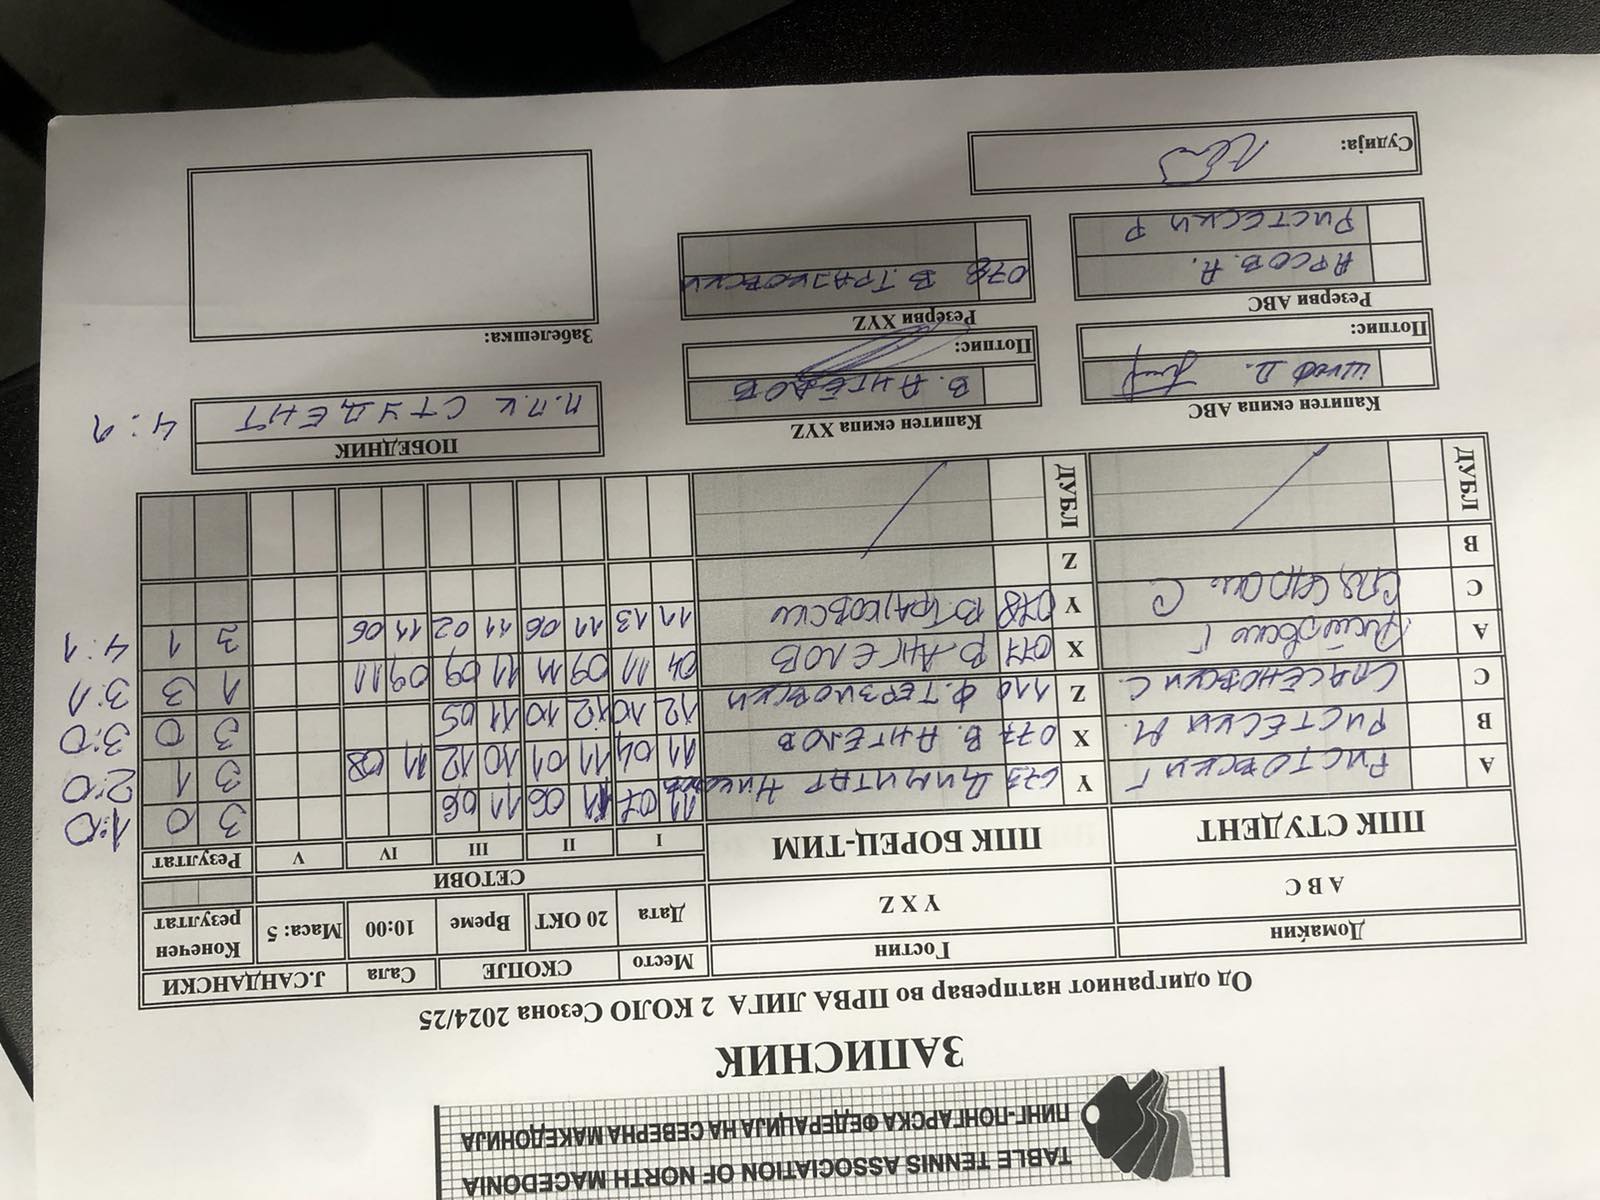 TABLE TENNIS ASSOCIATION OF NORTH MACEDONIA
ПИНГ-ПОНГАРСКА ФЕДЕРАЦИЈА НА СЕВЕРНА МАКЕДОНИЈА
ЗАПИСНИК
Од одиграниот натпревар во ПРВА ЛИГА 2 КОЛО Сезона 2024/25
Домаќин Гостин Место СКОПЈЕ Сала Ј.САНДАНСКИ
A B C Y X Z Дата 20 ОКТ Време 10:00 Маса: 5 Конечен резултат
ППК СТУДЕНТ ППК БОРЕЦ-ТИМ СЕТОВИ
I II III IV V Резултат
A РИСТОВСКИ Г Y 673 ДИМИТАР 11 07 11 06 11 06 3 0 1:0
B РИСТЕСКИ М. X 077 В. АНГЕЛОВ 11 04 11 01 10 12 11 08 3 1 2:0
C СПАСЕНОВСКИ С. Z 110 Ф. ТЕРЗИОВСКИ 12 10 12 10 11 05 3 0 3:0
A Ристовски Г X 077 В. АНГЕЛОВ 04 11 09 11 11 09 09 11 1 3 3:1
C С Y 078 В. ТРАЈКОВСКИ 11 13 11 06 11 02 11 06 3 1 4:1
B Z
ДУБЛ ДУБЛ
Капитен екипа ABC Капитен екипа XYZ ПОБЕДНИК
Д. В. АНГЕЛОВ П.П.К СТУДЕНТ 4:1
Потпис: Потпис:
Резерви ABC Резерви XYZ Забелешка:
АРСОВ. А. 078 В. ТРАЈКОВСКИ
РИСТЕСКИ Р
Судија: